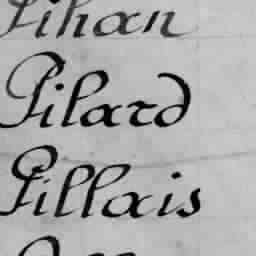 Pihan
Pilard
Pillais